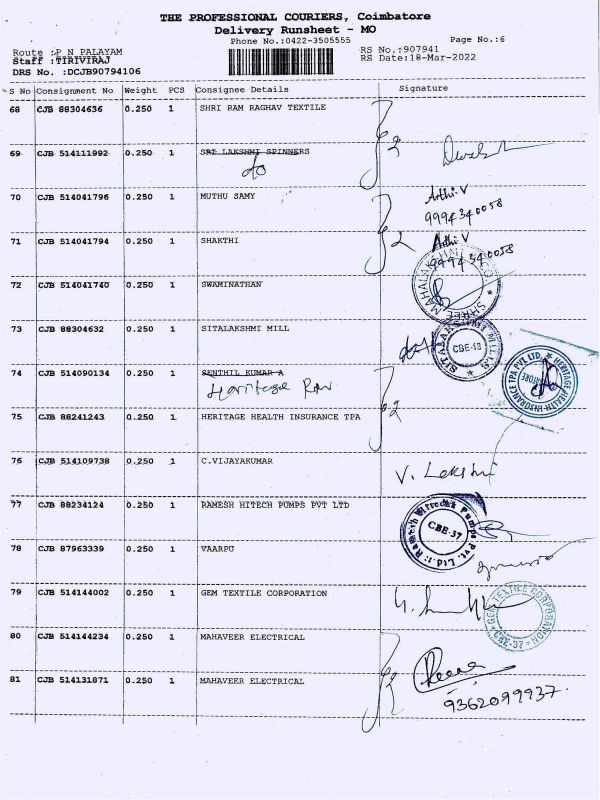 THE PROFESSIONAL COURIERS, Coimbatore
Delivery Runsheet - MO
Phone No.:0422-3505555 Page No.:6
Route :P N PALAYAM RS No.:907941
Staff :TIRIVIRAJ RS Date:18-Mar-2022
DRS No. :DCJB90794106
S No Consignment No Weight PCS Consignee Details Signature
68 CJB 88304636 0.250 1 SHRI RAM RAGHAV TEXTILE
69 CJB 514111992 0.250 1 SRI LAKSHMI SPINNERS
do
70 CJB 514041796 0.250 1 MUTHU SAMY Arthi.V
9994340058
71 CJB 514041794 0.250 1 SHAKTHI Arthi V
9994340058
72 CJB 514041740 0.250 1 SWAMINATHAN
73 CJB 88304632 0.250 1 SITALAKSHMI MILL
SITALAKSHMI MILLS
CBE-18
74 CJB 514090134 0.250 1 SENTHIL KUMAR A
Heritage
HERITAGE HEALTH INSURANCE TPA PVT LTD.
75 CJB 88241243 0.250 1 HERITAGE HEALTH INSURANCE TPA
76 CJB 514109738 0.250 1 C.VIJAYKUMAR
V. Lakshmi
77 CJB 88234124 0.250 1 RAMESH HITECH PUMPS PVT LTD
Ramesh Hitech Pumps Pvt. Ltd.
CBE-37
78 CJB 87963339 0.250 1 VAARPU
79 CJB 514144002 0.250 1 GEM TEXTILE CORPORATION
GEM TEXTILE CORPORATION
CBE-37
80 CJB 514144234 0.250 1 MAHAVEER ELECTRICAL
81 CJB 514131871 0.250 1 MAHAVEER ELECTRICAL
9362099937.